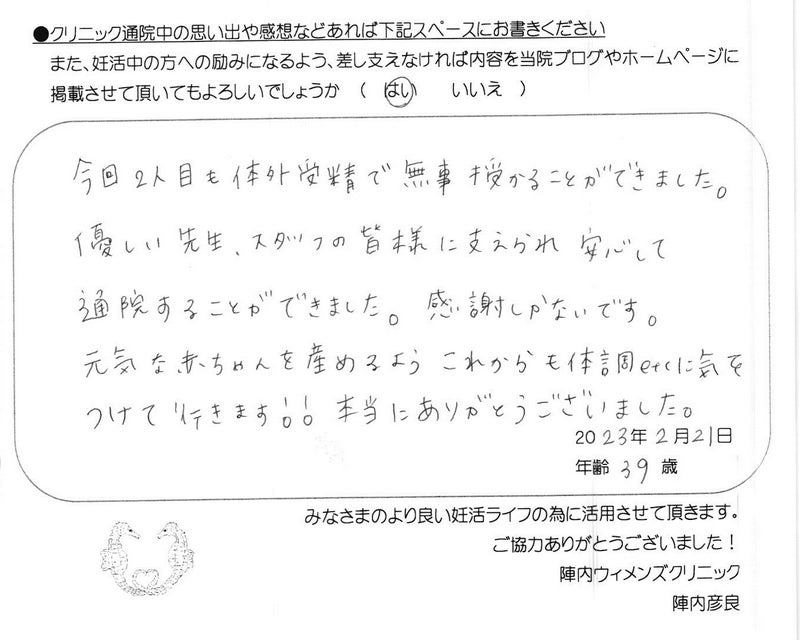 ●クリニック通院中の思い出や感想などあれば下記スペースにお書きください
また、妊活中の方への励みになるよう、差し支えなければ内容を当院ブログやホームページに
掲載させて頂いてもよろしいでしょうか （ はい いいえ ）
今回2人目も体外受精で無事授かることができました。
優しい先生、スタッフの皆様に支えられ安心して
通院することができました。感謝しかないです。
元気な赤ちゃんを産めるようこれからも体調etcに気を
つけて行きます!! 本当にありがとうございました。
2023年2月21日
年齢 39 歳
みなさまのより良い妊活ライフの為に活用させて頂きます。
ご協力ありがとうございました！
陣内ウィメンズクリニック
陣内彦良